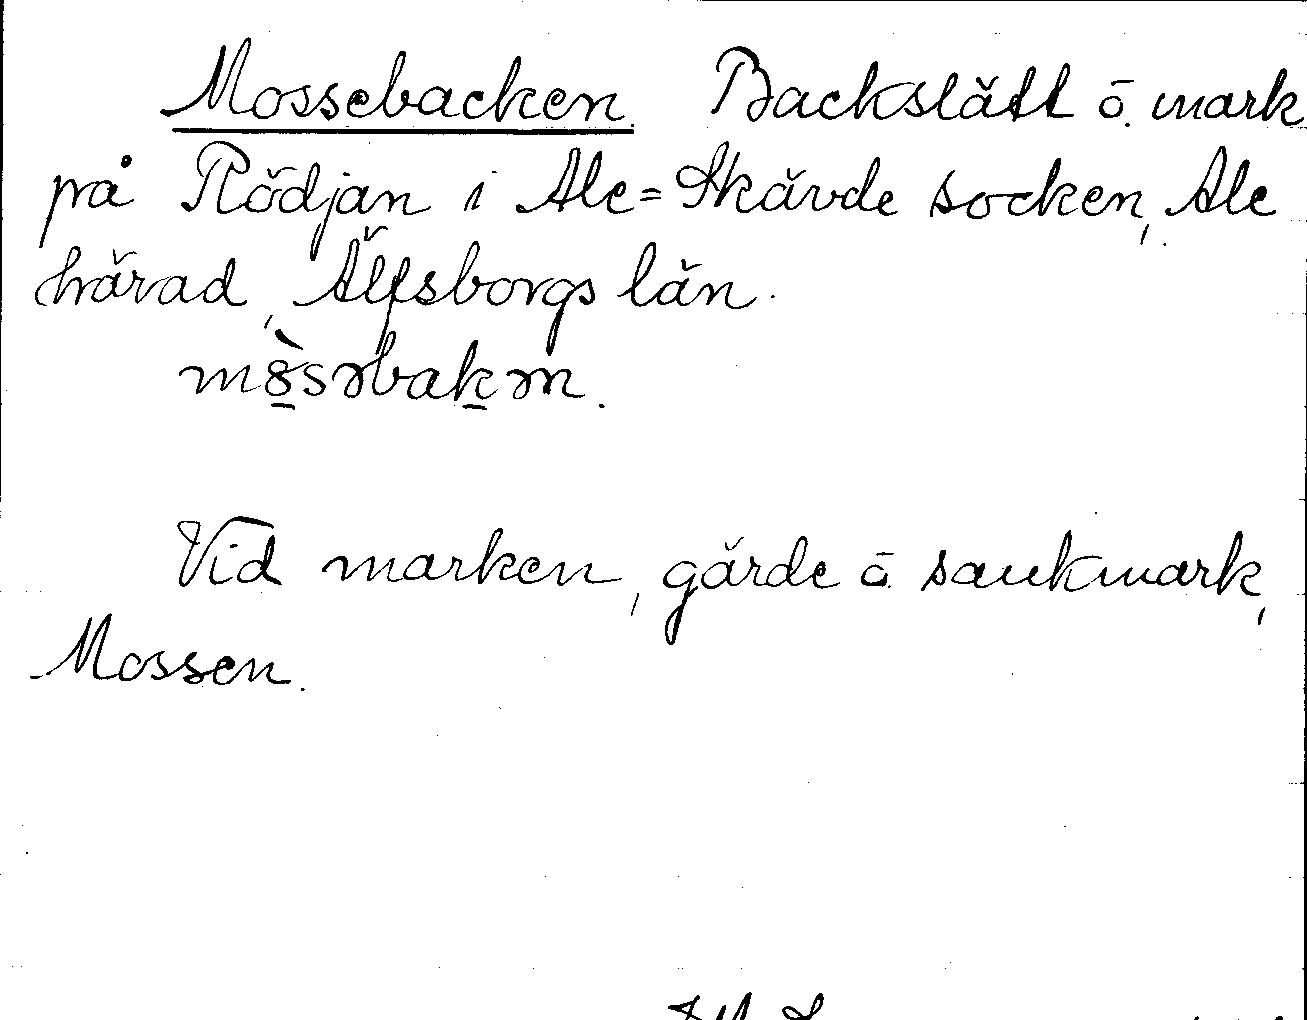 Mossebacken. Backslätt o. mark
på Rödjan i Ale=Skävde socken, Ale
härad, Älfsborgs län.
Vid marken, gärde o. sankmark,
Mossen.